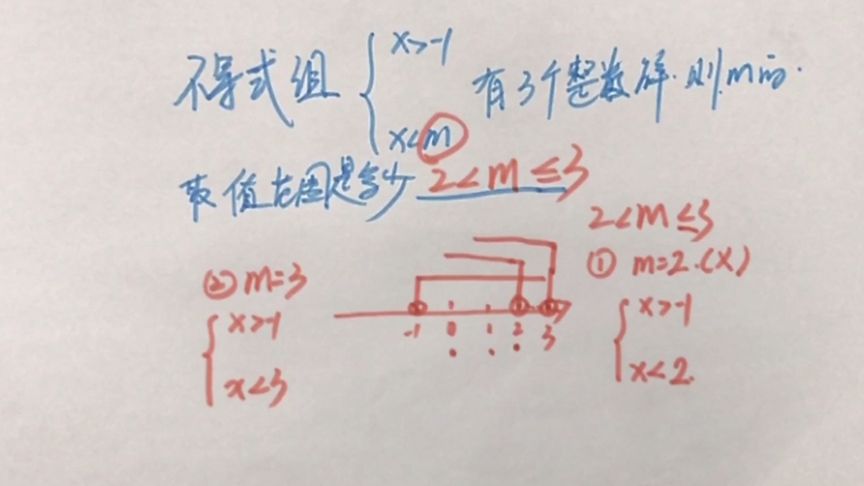 不等式组 { x>-1 x<m 有3个整数解.则m的.
取值范围是多少 2<m≤3
2<m≤3
① m=2.(X)
② m=3
{ x>-1 x<3
-1 0 1 2 3
{ x>-1 x<2.